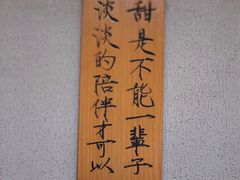 甜是不能一輩子
淡淡的陪伴才可以